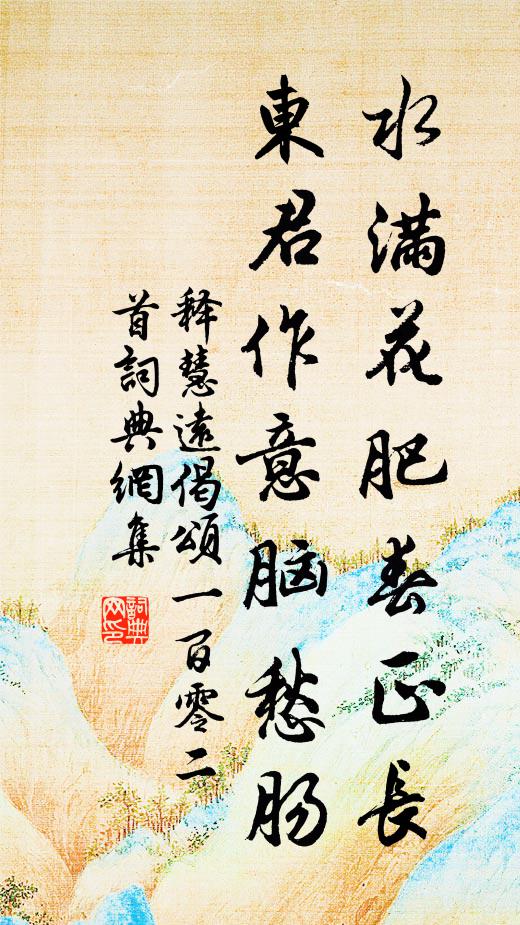 水满花肥春正長
東君作意脑愁肠
释慧遠偈頌一百零二
首詞典網集
詞典
网印